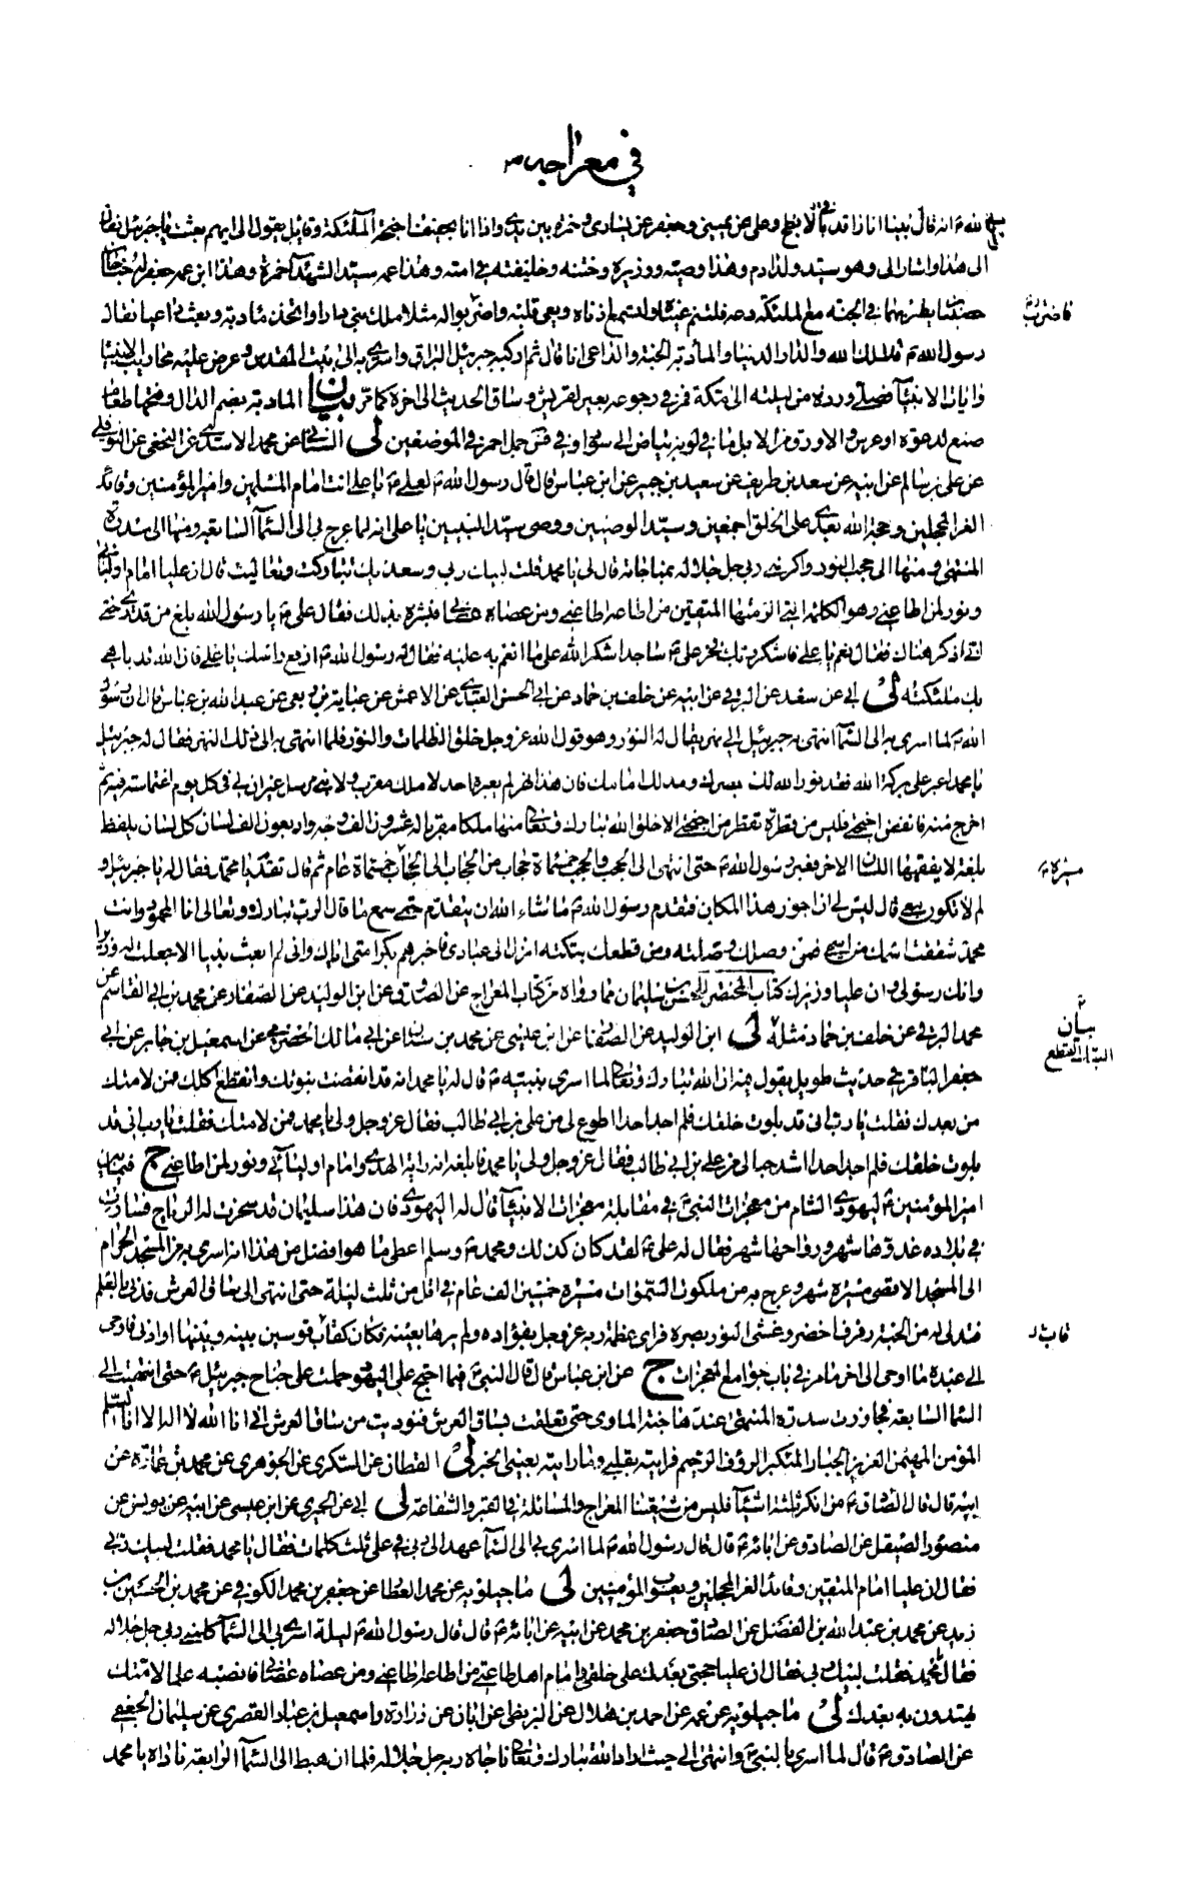 في معراجه ص
الله ص انه قال بينا انا راقد بالابطح وعلي عن يميني وجعفر عن يساري وحمزة بين يدي واذا انا بحفيف اجنحة الملائكة وقائل يقول الى ايهم بعثت يا جبرئيل فقال
الى هذا واشار الي وهو سيد ولد ادم وهذا وصيه ووزيره وختنه وخليفته في امته وهذا عمه سيد الشهداء حمزة وهذا ابن عمه جعفر له جناحان
خضيبان يطير بهما في الجنة مع الملائكة دعه فلتنم عيناه ولتسمع اذناه ويعي قلبه واضربوا له مثلا ملك بنى دارا واتخذ مأدبة وبعث داعيا فقال
فاضربوا
رسول الله ص فالملك الله والدار الدنيا والمأدبة الجنة والداعي انا قال ثم ركبه جبرئيل البراق واسرى به الى بيت المقدس وعرض عليه محاريب الانبياء
وايات الانبياء فصلى ورده من ليلته الى مكة فمر في رجوعه بعير لقريش وساق الحديث الى اخره كما مر بيان المادبة بضم الدال وفتحها طعام
صنع لدعوة او عرس والاورق من الابل ما في لونه بياض الى سواد وفي قس جمل احمر في الموضعين لى السناني عن محمد الاسدي عن النخعي عن النوفلي
عن علي بن سالم عن ابيه عن سعد بن طريف عن سعيد بن جبير عن ابن عباس قال قال رسول الله ص لعلي ع يا علي انت امام المسلمين وامير المؤمنين وقائد
الغر المحجلين وحجة الله بعدي على الخلق اجمعين وسيد الوصيين ووصي سيد النبيين يا علي انه لما عرج بي الى السماء السابعة ومنها الى سدرة
المنتهى ومنها الى حجب النور واكرمني ربي جل جلاله بمناجاته قال لي يا محمد قلت لبيك ربي وسعديك تباركت وتعاليت قال ان عليا امام اوليائي
ونور لمن اطاعني وهو الكلمة التي الزمتها المتقين من اطاعه اطاعني ومن عصاه عصاني فبشره بذلك فقال علي ع يا رسول الله بلغ من قدري حتى
اني اذكر هناك فقال نعم يا علي فاشكر ربك فخر علي ع ساجدا شكرا لله على ما انعم به عليه فقال له رسول الله ص ارفع راسك يا علي فان الله قد باهى
بك ملائكته لى ابي عن سعد عن البرقي عن ابيه عن خلف بن حماد عن ابي الحسن العبدي عن الاعمش عن عباية بن ربعي عن عبد الله بن عباس قال ان رسول
الله ص لما اسري به الى السماء انتهى به جبرئيل الى نهر يقال له النور وهو قول الله عز وجل خلق الظلمات والنور فلما انتهى به الى ذلك النهر فقال له جبرئيل
يا محمد اعبر على بركة الله فقد نور الله لك بصرك ومد لك امامك فان هذا نهر لم يعبره احد لا ملك مقرب ولا نبي مرسل غير ان لي في كل يوم اغتماسة فيه ثم
اخرج منه فانفض اجنحتي فليس من قطرة تقطر من اجنحتي الا خلق الله تبارك وتعالى منها ملكا مقربا له عشرون الف وجه واربعون الف لسان كل لسان يلفظ
بلغة لا يفقهها اللسان الاخر فعبر رسول الله ص حتى انتهى الى الحجب والحجب خمسمائة حجاب من الحجاب الى الحجاب خمسمائة عام ثم قال تقدم يا محمد فقال له يا جبرئيل و
مسيرة
لم لا تكون معي قال ليس لي ان اجوز هذا المكان فتقدم رسول الله ص ما شاء الله ان يتقدم حتى سمع ما قال الرب تبارك وتعالى انا المحمود وانت
محمد شققت اسمك من اسمي فمن وصلك وصلته ومن قطعك بتكته انزل الى عبادي فاخبرهم بكرامتي اياك واني لم ابعث نبيا الا جعلت له وزيرا
وانك رسولي وان عليا وزيرك كتاب المحتضر للحسن بن سليمان مما رواه من كتاب المعراج عن الصدوق عن ابن الوليد عن الصفار عن محمد بن ابي القاسم عن
بيان
البتك القطع
محمد البرقي عن خلف بن حماد مثله لى ابن الوليد عن الصفار عن ابن عيسى عن محمد بن سنان عن ابي مالك الحضرمي عن اسمعيل بن جابر عن ابي
جعفر الباقر ع في حديث طويل يقول فيه ان الله تبارك وتعالى لما اسري بنبيه ص قال له يا محمد انه قد انقضت نبوتك وانقطع اكلك فمن لامتك
من بعدك فقلت يا رب اني قد بلوت خلقك فلم اجد احدا اطوع لي من علي بن ابي طالب فقال عز وجل ولي يا محمد فمن لامتك فقلت يا رب اني قد
بلوت خلقك فلم اجد احدا اشد حبا لي من علي بن ابي طالب فقال عز وجل ولي يا محمد فابلغه انه راية الهدى وامام اوليائي ونور لمن اطاعني ج فيما بين
امير المؤمنين ع ليهودي الشام من معجزات النبي ص في مقابلة معجزات الانبياء قال له اليهودي فان هذا سليمان قد سخرت له الرياح فسارت به
في بلاده غدوها شهر ورواحها شهر فقال له علي ع لقد كان كذلك ومحمد ص وسلم اعطي ما هو افضل من هذا انه اسري به من المسجد الحرام
الى المسجد الاقصى مسيرة شهر وعرج به من ملكوت السموات مسيرة خمسين الف عام في اقل من ثلث ليلة حتى انتهى الى ساق العرش فدنى بالعلم
فتدلى له من الجنة رفرف اخضر وغشى النور بصره فراى عظمة ربه عز وجل بفؤاده ولم يرها بعينه فكان كقاب قوسين بينه وبينها او ادنى فاوحى
قاب
الى عبده ما اوحى الى اخر ما مر في باب جوامع المعجزات ج عن ابن عباس قال قال النبي ص فيما احتج على اليهود حملت على جناح جبرئيل ع حتى انتهيت الى
السماء السابعة فجاوزت سدرة المنتهى عندها جنة الماوى حتى تعلقت بساق العرش فنوديت من ساق العرش اني انا الله لا اله الا انا السلام
المؤمن المهيمن العزيز الجبار المتكبر الرؤوف الرحيم فرايته بقلبي وما رايته بعيني الخبر لى القطان عن السكري عن الجوهري عن محمد بن عمارة عن
ابيه قال قال الصادق ع من انكر ثلثة اشياء فليس من شيعتنا المعراج والمسائلة في القبر والشفاعة لى ابي عن الحميري عن ابن عيسى عن ابيه عن يونس عن
منصور الصيقل عن الصادق عن ابائه ع قال قال رسول الله ص لما اسري بي الى السماء عهد الي ربي في علي ثلث كلمات فقال يا محمد فقلت لبيك ربي
فقال ان عليا امام المتقين وقائد الغر المحجلين ويعسوب المؤمنين لى ماجيلويه عن محمد العطار عن جعفر بن محمد الكوفي عن محمد بن الحسين بن
زيد عن محمد بن عبد الله بن الفضل عن الصادق جعفر بن محمد عن ابيه عن ابائه ع قال قال رسول الله ص ليلة اسري بي الى السماء كلمني ربي جل جلاله
فقال يا محمد فقلت لبيك ربي فقال ان عليا حجتي بعدك على خلقي وامام اهل طاعتي من اطاعه اطاعني ومن عصاه عصاني فانصبه علما لامتك
يهتدون به بعدك لى ماجيلويه عن عمه عن احمد بن هلال عن البزنطي عن ابان عن زرارة واسمعيل بن عباد القصري عن سليمان الجعفي
عن الصادق ع قال لما اسري بالنبي ص وانتهى الى حيث اراد الله تبارك وتعالى ناجاه ربه جل جلاله فلما ان هبط الى السماء الرابعة ناداه يا محمد